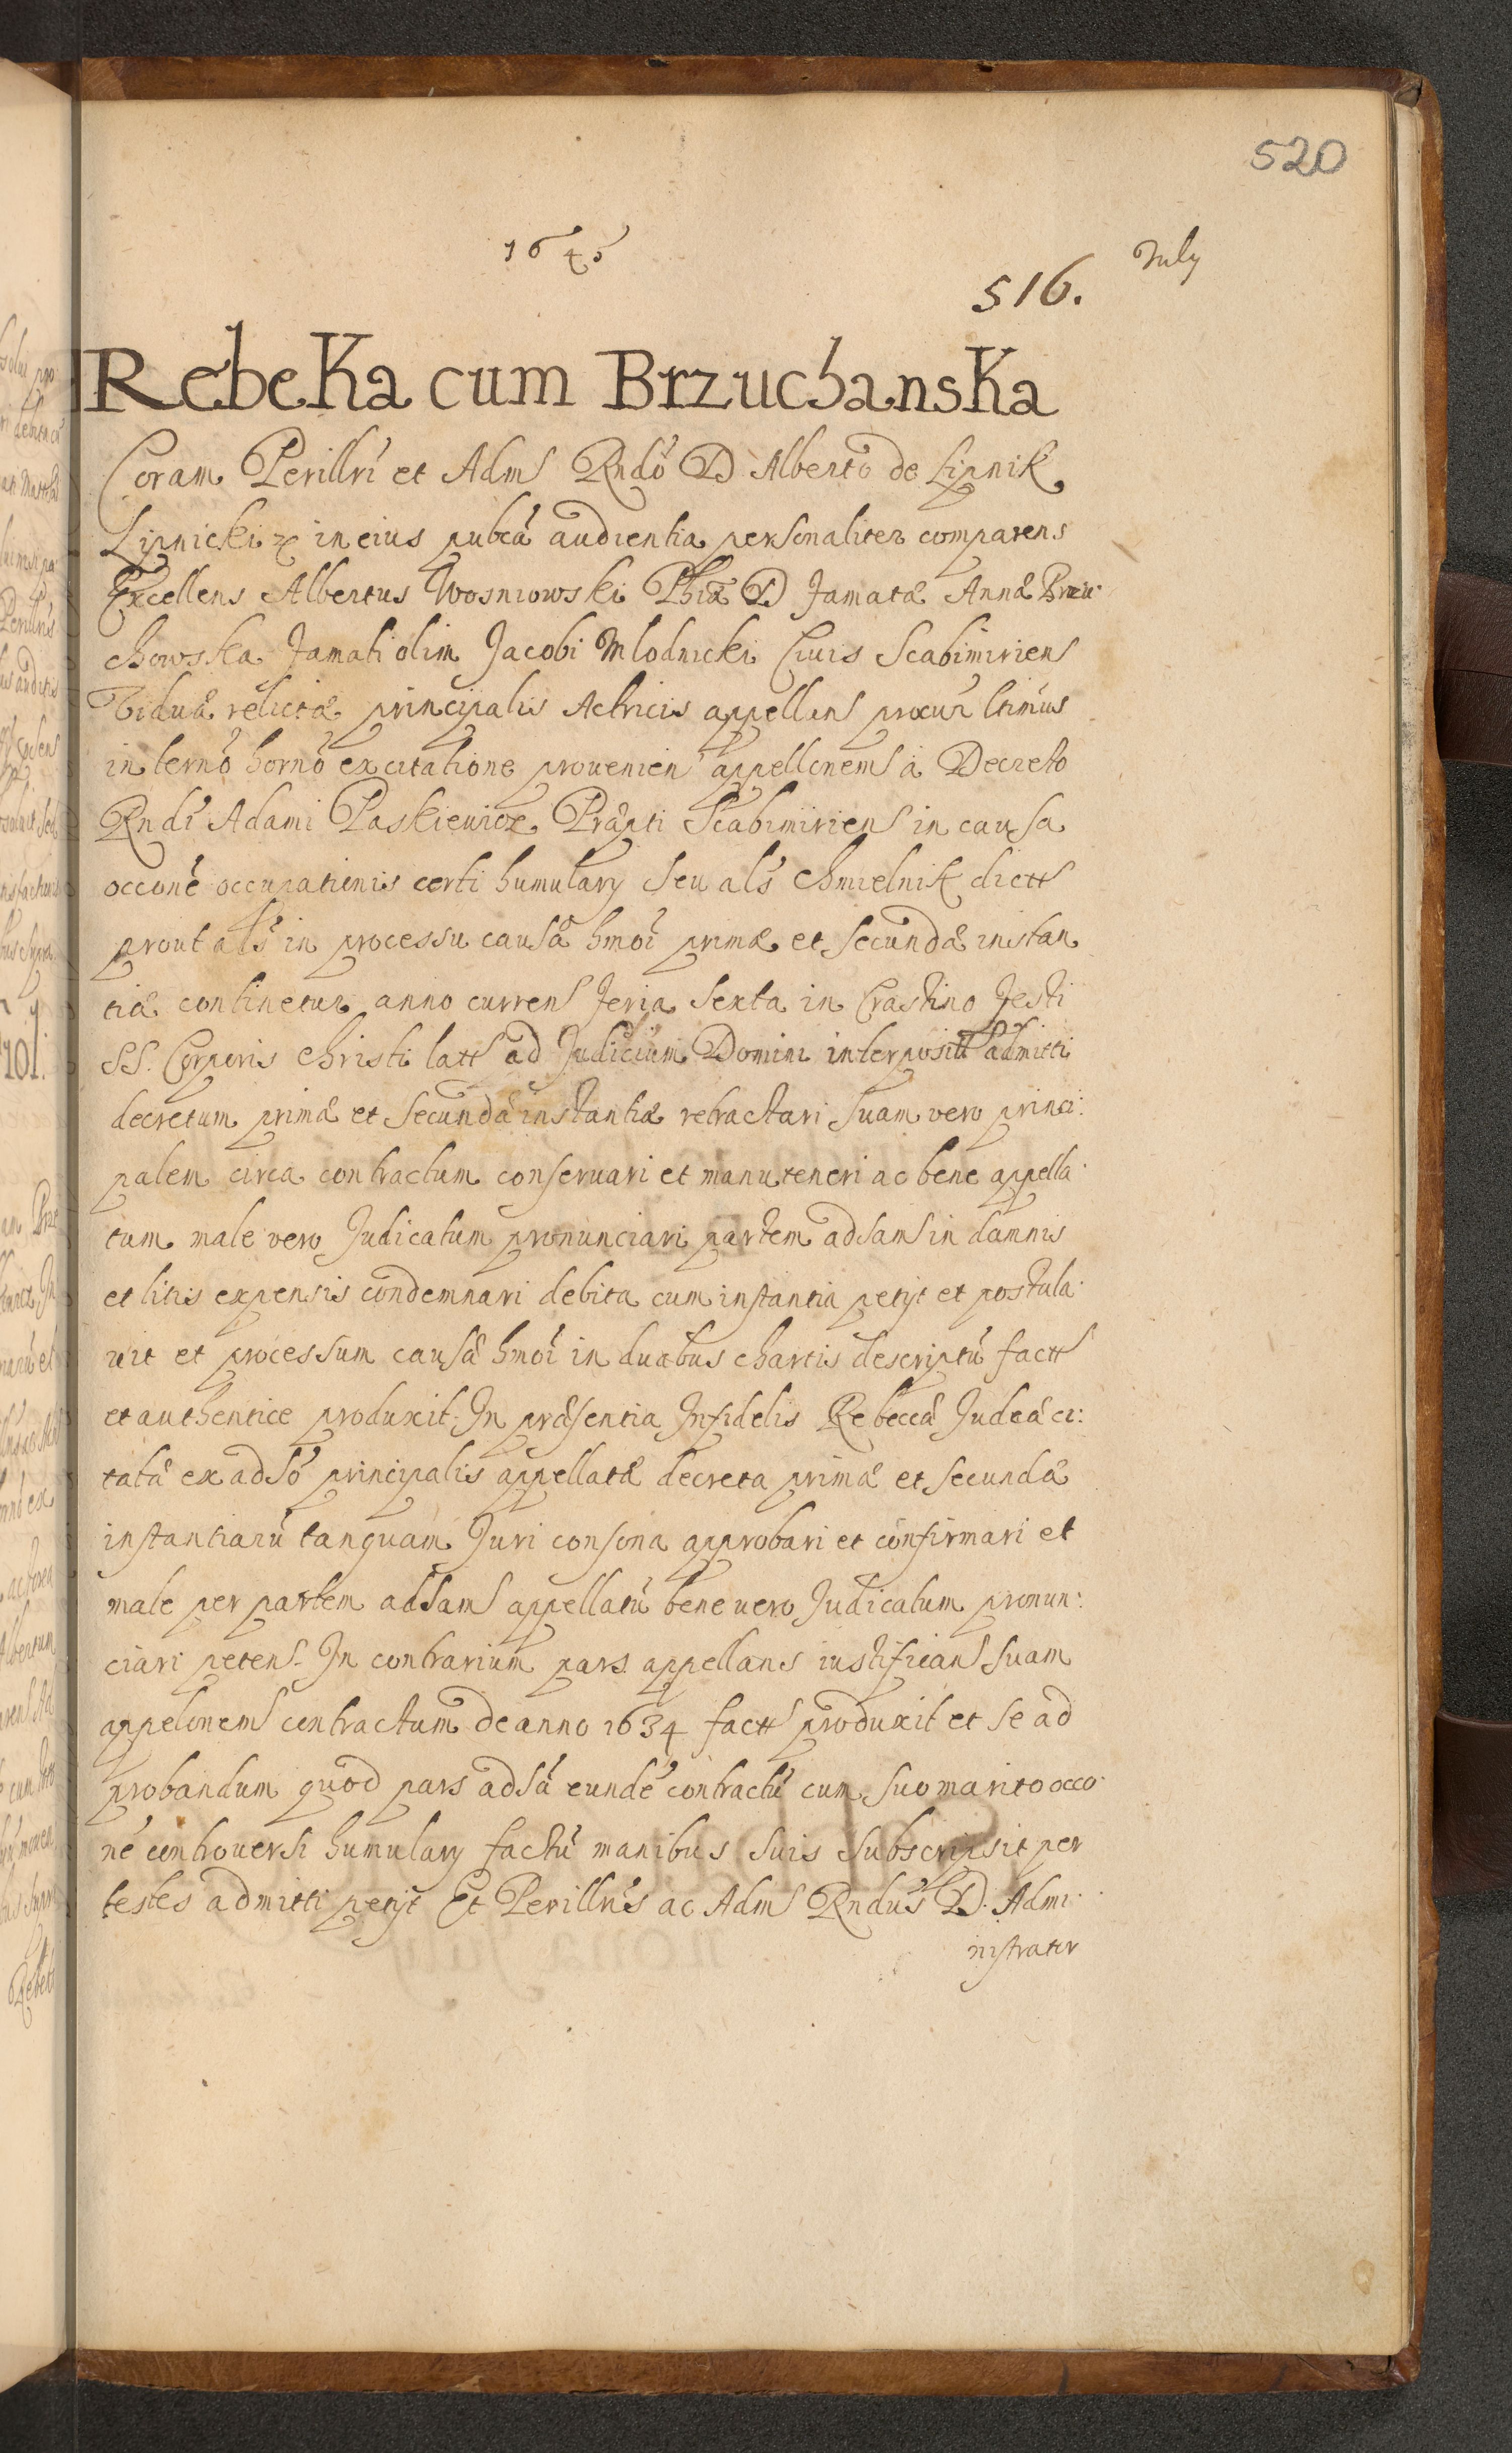 520
1645
July
516.
Rebeka cum Brzuchanska
Coram Perillri et Adm Rndo D Alberto de Lipnik
Lipnicki in eius pubca audientia personaliter comparens
Excellens Albertus Wosniowski Phiæ D famatæ Annæ Brzu:
chowska famati olim Jacobi Mlodnicki Ciuis Scabimirien
Viduæ relictæ principalis Actricis appellan procur ltimus
in termo horno ex citatione prouenien appellonem a Decreto
Rndi Adami Paskiewicz Præpti Scabimirien in causa
occone occupationis certi humulary seu als Chmielnik dict
prout als in processu causæ hmoi primæ et secundæ instan
tiæ continetur anno curren feria sexta in Crastino festi
SS. Corporis Christi latt ad Judicium Domini interposit admitti
decretum primæ et secundæ instantiæ retractari suam vero princi:
palem circa contractum conseruari et manuteneri ac bene appella:
tum male vero Judicatum pronunciari partem adsam in damnis
et litis expensis condemnari debita cum instantia petyt et postula:
uit et processum causæ hmoi in duabus chartis descriptu factt
et authentice produxit. In præsentia Infidelis Rebeccæ Judeæ ci:
tatæ ex adso principalis appellatæ decreta primæ et secundæ
instantiaru tanquam Juri consona approbari et confirmari et
male per partem adsam appellatu bene uero Judicatum pronun:
ciari peten. In contrarium pars appellans iustifican suam
appelonem contractum de anno 1634 factt produxit et se ad
probandum quod pars adsa eunde contractu cum suo marito occo:
ne controuersi humulary factu manibus suis subscripsit per
testes admitti petyt Et Perillris ac Adm Rndus D. Admi:
nistrator